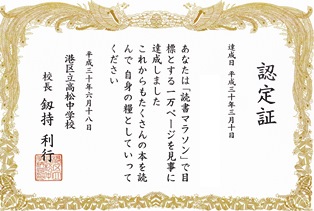 認定証
達成日 平成三十年三月十日
あなたは「読書マラソン」で目
標とする一万ページを見事に
達成しました
これからもたくさんの本を読
んで自身の糧としていって
ください
平成三十年六月十八日
港区立高松中学校
校長 釼持 利行